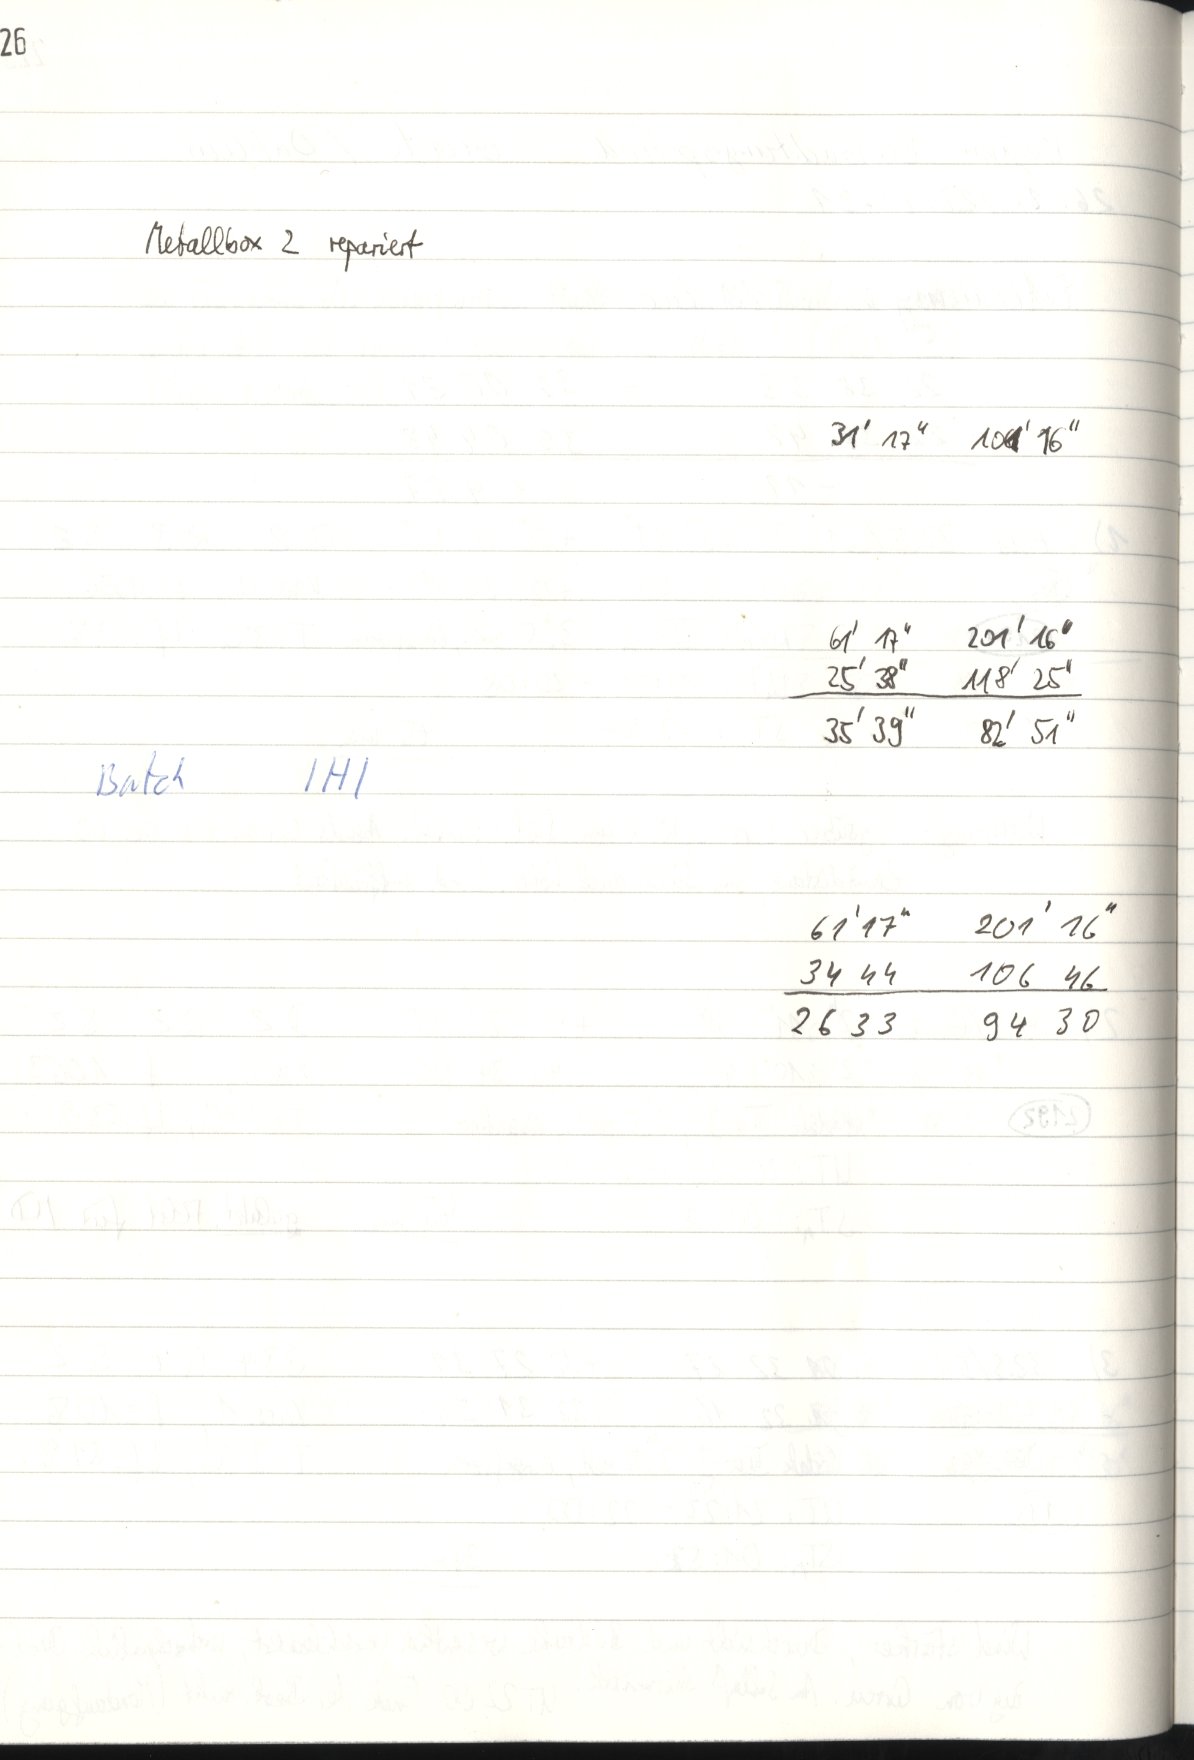 26
Metallbox 2 repariert
31' 17" 16"
61' 17" 201' 16"
25' 38" 118' 25"
35' 39" 82' 51"
Batch IHI
61' 17" 201' 16"
34 44 106 46
26 33 94 30